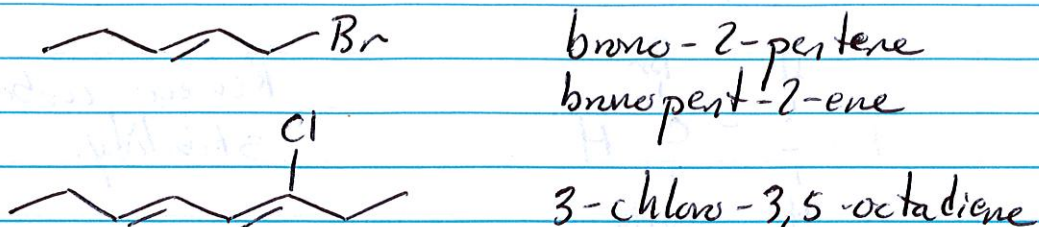 Br
bromo-2-pentene
bromopent-2-ene
Cl
3-chloro-3,5-octadiene